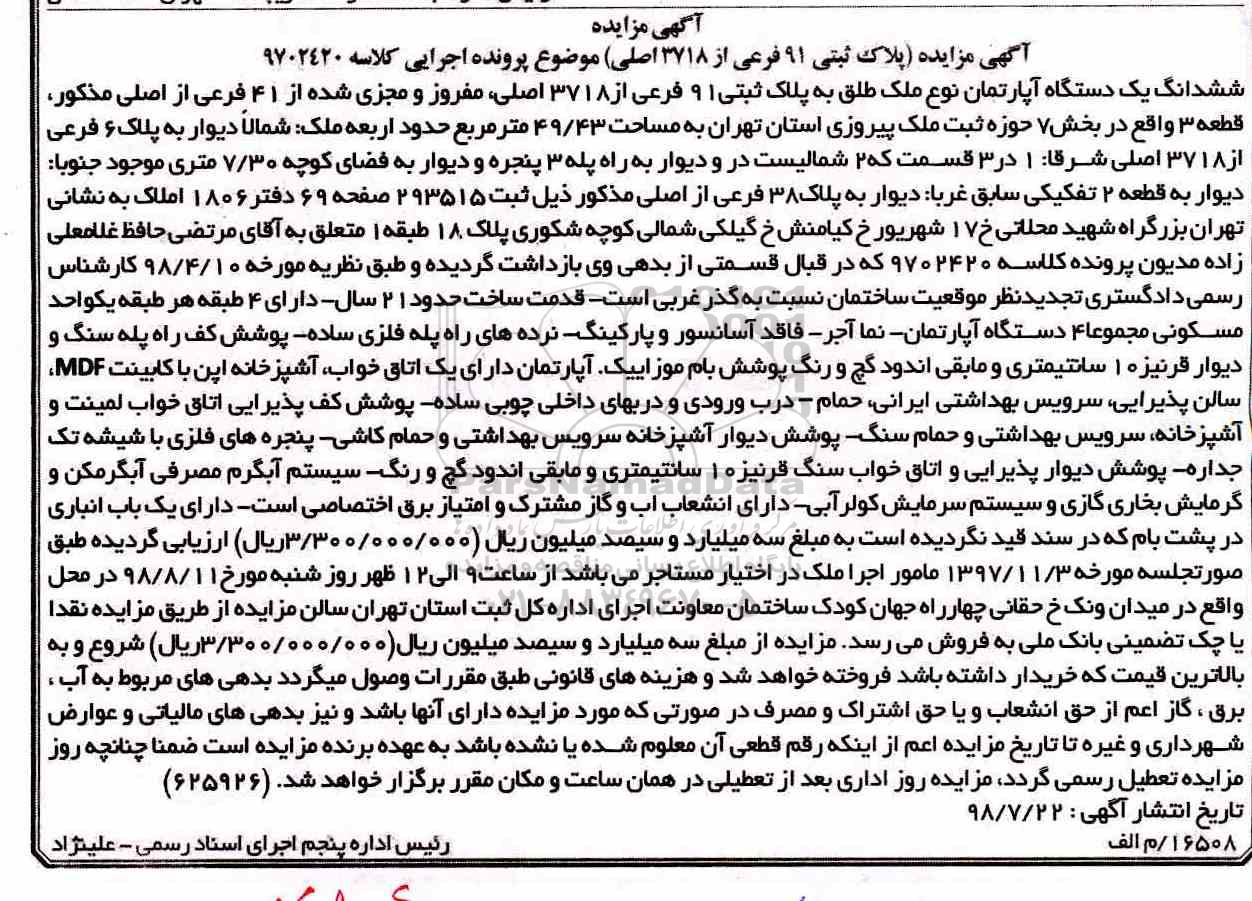 آگهی مزایده
آگهی مزایده (پلاک ثبتی ۹۱ فرعی از ۳۷۱۸ اصلی) موضوع پرونده اجرایی کلاسه ۹۷۰۲۴۲۰
ششدانگ یک دستگاه آپارتمان نوع ملک طلق به پلاک ثبتی ۹۱ فرعی از ۳۷۱۸ اصلی، مفروز و مجزی شده از ۴۱ فرعی از اصلی مذکور،
قطعه ۳ واقع در بخش ۷ حوزه ثبت ملک پیروزی استان تهران به مساحت ۴۹/۴۳ متر مربع حدود اربعه ملک: شمالاً دیوار به پلاک ۶ فرعی
از ۳۷۱۸ اصلی شرقا: ۱ در ۳ قسمت که ۲ شمالیست در و دیوار به راه پله ۳ پنجره و دیوار به فضای کوچه ۷/۳۰ متری موجود جنوبا:
دیوار به قطعه ۲ تفکیکی سابق غربا: دیوار به پلاک ۳۸ فرعی از اصلی مذکور ذیل ثبت ۲۹۳۵۱۵ صفحه ۶۹ دفتر ۱۸۰۶ املاک به نشانی
تهران بزرگراه شهید محلاتی خ ۱۷ شهریور خ کیامنش خ گیلکی شمالی کوچه شکوری پلاک ۱۸ طبقه ۱ متعلق به آقای مرتضی حافظ غلامعلی
زاده مدیون پرونده کلاسه ۹۷۰۲۴۲۰ که در قبال قسمتی از بدهی وی بازداشت گردیده و طبق نظریه مورخه ۹۸/۴/۱۰ کارشناس
رسمی دادگستری تجدیدنظر موقعیت ساختمان نسبت به گذر غربی است– قدمت ساخت حدود ۲۱ سال– دارای ۴ طبقه هر طبقه یکواحد
مسکونی مجموعا ۴ دستگاه آپارتمان– نما آجر– فاقد آسانسور و پارکینگ– نرده های راه پله فلزی ساده– پوشش کف راه پله سنگ و
دیوار قرنیز ۱۰ سانتیمتری و مابقی اندود گچ و رنگ پوشش بام موزاییک. آپارتمان دارای یک اتاق خواب، آشپزخانه اپن با کابینت MDF،
سالن پذیرایی، سرویس بهداشتی ایرانی، حمام – درب ورودی و دربهای داخلی چوبی ساده– پوشش کف پذیرایی اتاق خواب لمینت و
آشپزخانه، سرویس بهداشتی و حمام سنگ– پوشش دیوار آشپزخانه سرویس بهداشتی و حمام کاشی– پنجره های فلزی با شیشه تک
جداره– پوشش دیوار پذیرایی و اتاق خواب سنگ قرنیز ۱۰ سانتیمتری و مابقی اندود گچ و رنگ– سیستم آبگرم مصرفی آبگرمکن و
گرمایش بخاری گازی و سیستم سرمایش کولر آبی– دارای انشعاب اب و گاز مشترک و امتیاز برق اختصاصی است– دارای یک باب انباری
در پشت بام که در سند قید نگردیده است به مبلغ سه میلیارد و سیصد میلیون ریال (۳/۳۰۰/۰۰۰/۰۰۰ریال) ارزیابی گردیده طبق
صورتجلسه مورخه ۱۳۹۷/۱۱/۳ مامور اجرا ملک در اختیار مستاجر می باشد از ساعت ۹ الی ۱۲ ظهر روز شنبه مورخ ۹۸/۸/۱۱ در محل
واقع در میدان ونک خ حقانی چهارراه جهان کودک ساختمان معاونت اجرای اداره کل ثبت استان تهران سالن مزایده از طریق مزایده نقدا
یا چک تضمینی بانک ملی به فروش می رسد. مزایده از مبلغ سه میلیارد و سیصد میلیون ریال(۳/۳۰۰/۰۰۰/۰۰۰ریال) شروع و به
بالاترین قیمت که خریدار داشته باشد فروخته خواهد شد و هزینه های قانونی طبق مقررات وصول میگردد بدهی های مربوط به آب ،
برق ، گاز اعم از حق انشعاب و یا حق اشتراک و مصرف در صورتی که مورد مزایده دارای آنها باشد و نیز بدهی های مالیاتی و عوارض
شهرداری و غیره تا تاریخ مزایده اعم از اینکه رقم قطعی آن معلوم شده یا نشده باشد به عهده برنده مزایده است ضمنا چنانچه روز
مزایده تعطیل رسمی گردد، مزایده روز اداری بعد از تعطیلی در همان ساعت و مکان مقرر برگزار خواهد شد. (۶۲۵۹۲۶)
تاریخ انتشار آگهی : ۹۸/۷/۲۲
۱۶۵۰۸/م الف
رئیس اداره پنجم اجرای اسناد رسمی – علینژاد
ParsNamadData
پایگاه اطلاع رسانی مناقصه و مزایده